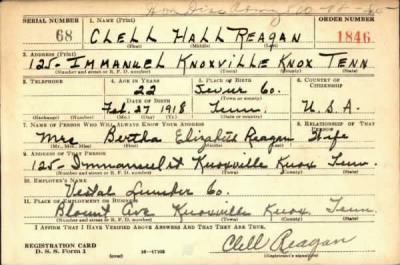 Hon Disc Army
SERIAL NUMBER 1. NAME (Print) ORDER NUMBER
68 CLELL HALL REAGAN 1846
(First) (Middle) (Last)
3. ADDRESS (Print)
125- IMMANUEL KNOXVILLE KNOX TENN
(Number and street or R. F. D. number) (Town) (County) (State)
3. TELEPHONE 4. AGE IN YEARS 5. PLACE OF BIRTH 6. COUNTRY OF CITIZENSHIP
22 Sevier Co.
DATE OF BIRTH (Town or county)
Feb. 27 1918 Tenn. U.S.A.
(Exchange) (Number) (Mo.) (Day) (Yr.) (State or country)
7. NAME OF PERSON WHO WILL ALWAYS KNOW YOUR ADDRESS 8. RELATIONSHIP OF THAT PERSON
Mrs Bertha Elizabeth Reagan Wife
(Mr., Mrs., Miss) (First) (Middle) (Last)
9. ADDRESS OF THAT PERSON
125- Immanuel st Knoxville Knox Tenn.
(Number and street or R. F. D. number) (Town) (County) (State)
10. EMPLOYER'S NAME
Vestal Lumber Co.
11. PLACE OF EMPLOYMENT OR BUSINESS
Blount ave Knoxville Knox Tenn.
(Number and street or R. F. D. number) (Town) (County) (State)
I AFFIRM THAT I HAVE VERIFIED ABOVE ANSWERS AND THAT THEY ARE TRUE.
REGISTRATION CARD
D. S. S. Form 1 (over) Clell Reagan
(Registrant's signature)